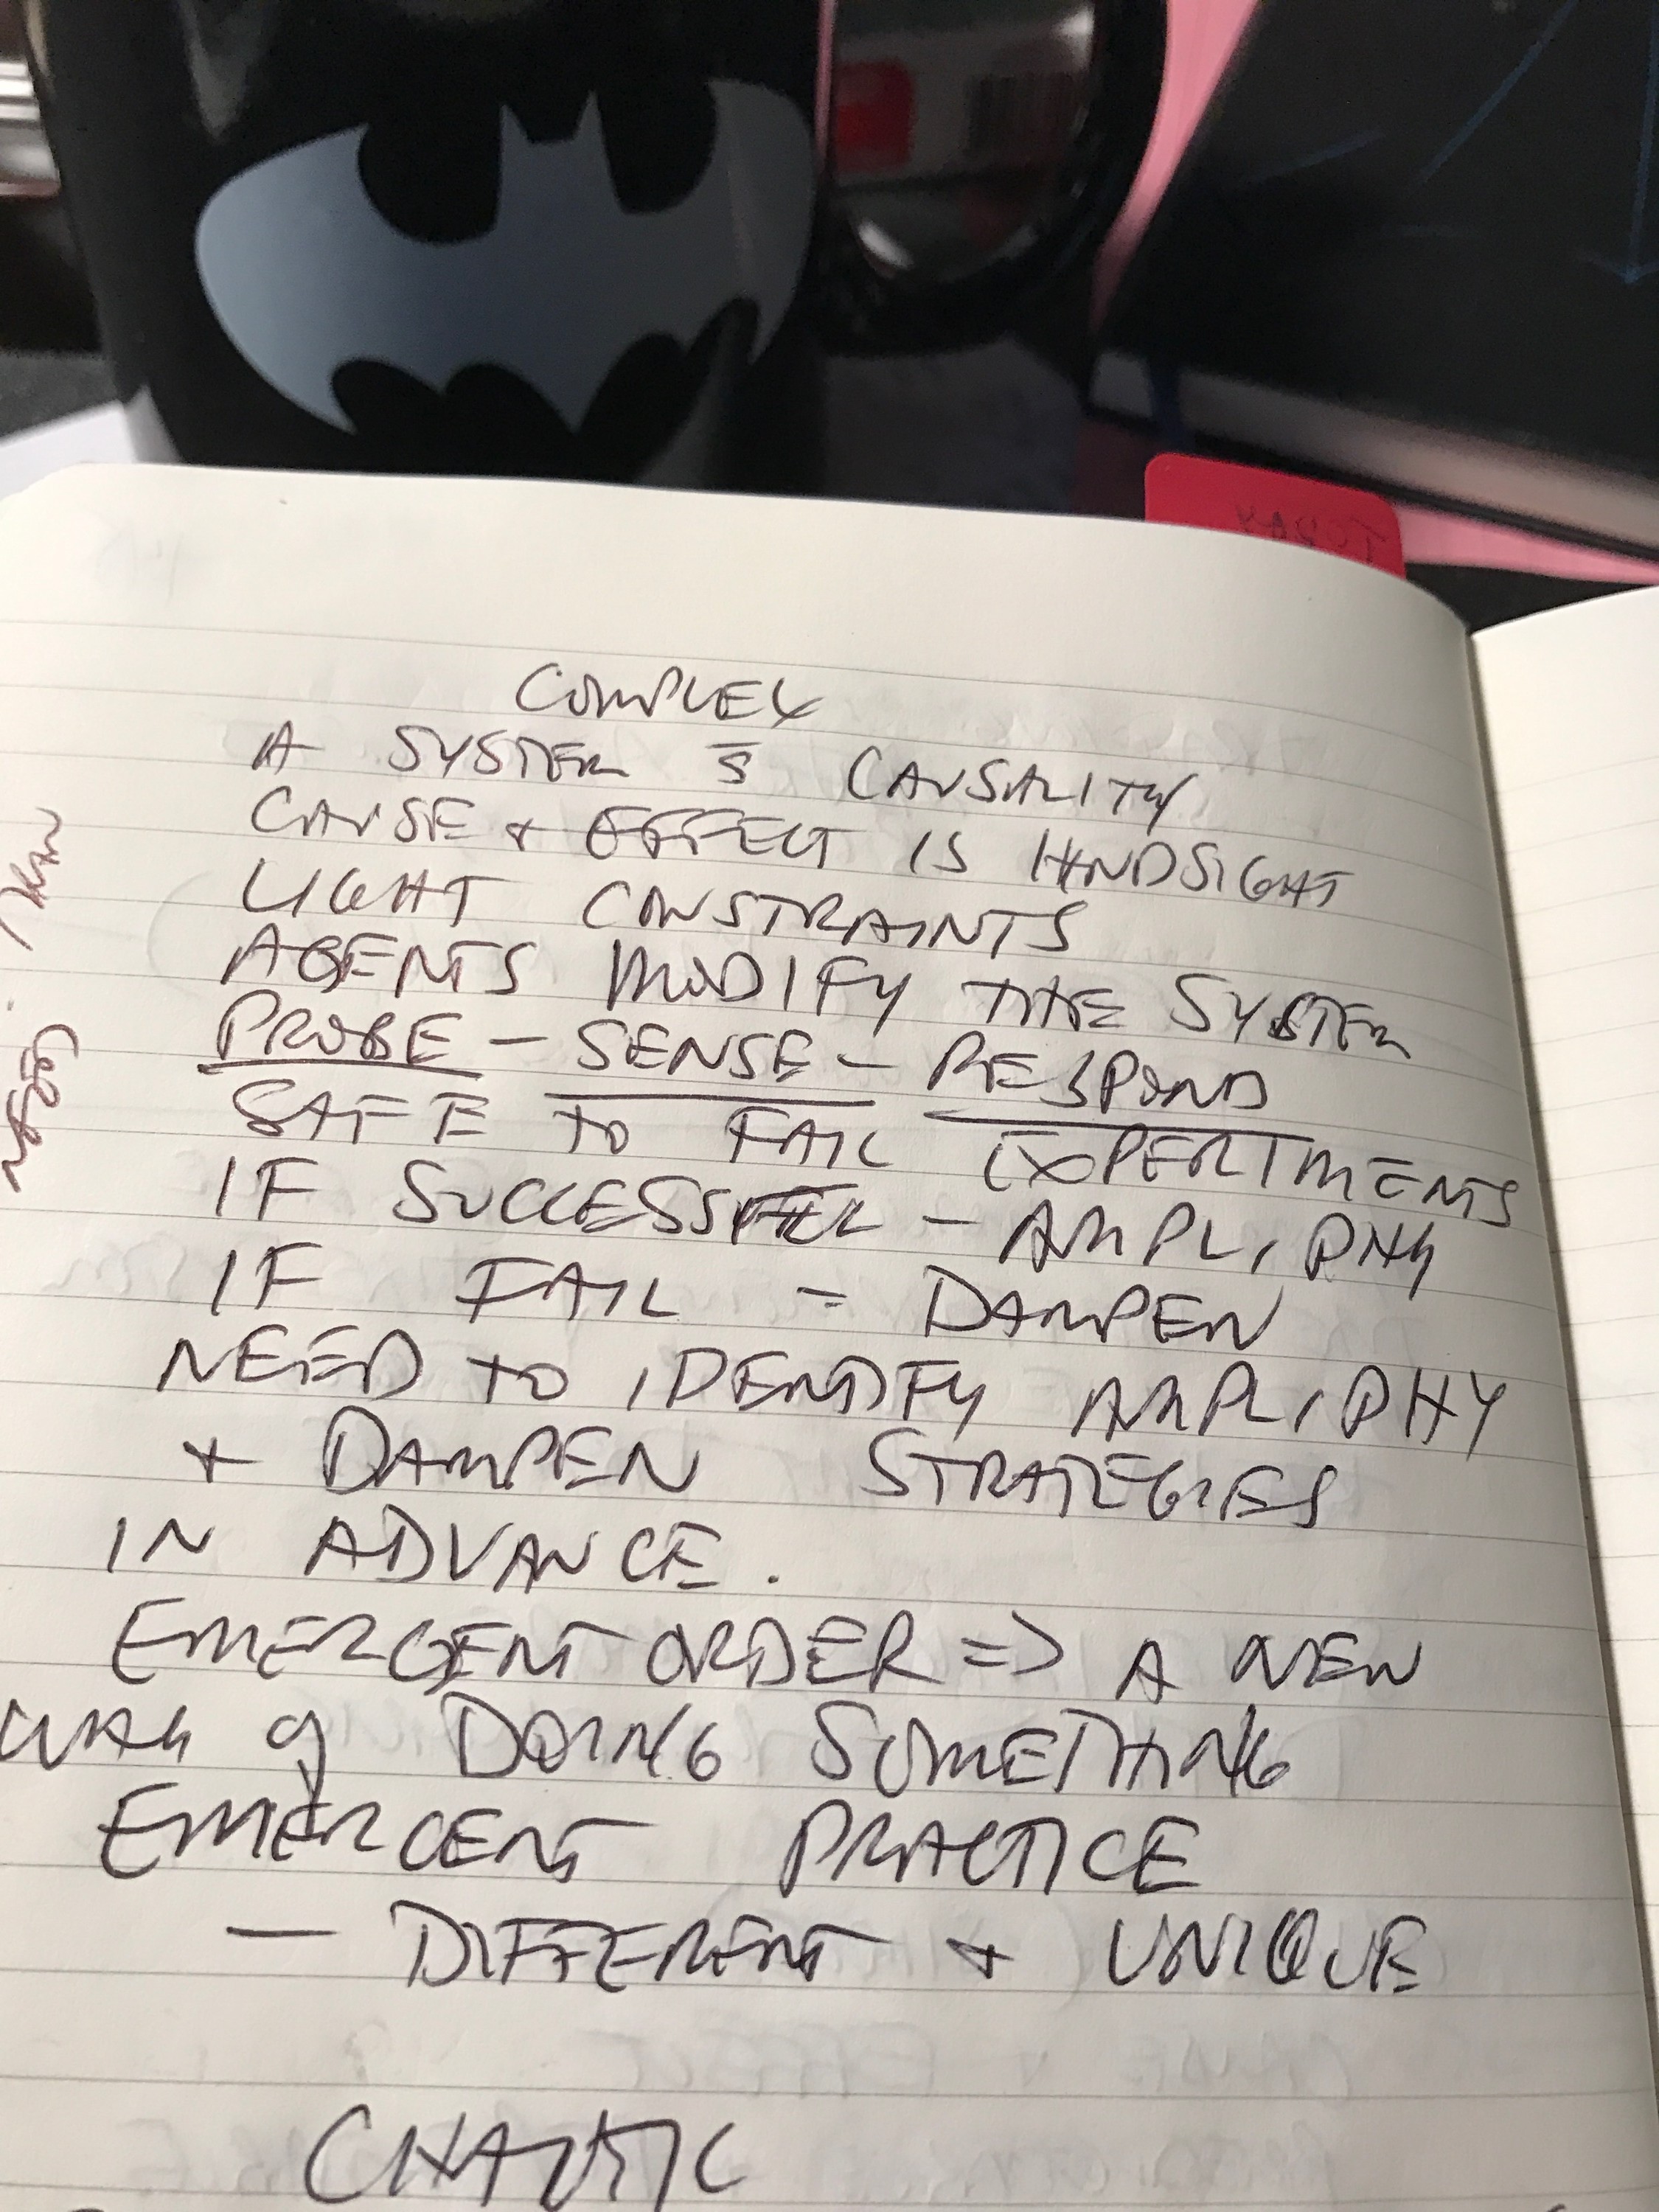 TODAY
COMPLEX
A SYSTEM s̄ CAUSALITY
CAUSE + EFFECT IS HINDSIGHT
LIGHT CONSTRAINTS
AGENTS MODIFY THE SYSTEM
PROBE – SENSE – RESPOND
SAFE TO FAIL EXPERIMENTS
IF SUCCESSFUL – AMPLIPHY
IF FAIL – DAMPEN
NEED TO IDENTIFY AMPLIPHY
+ DAMPEN STRATEGIES
IN ADVANCE.
EMERGENT ORDER => A NEW
WAY of DOING SOMETHING
EMERGENT PRACTICE
— DIFFERENT + UNIQUE
CHAOTIC